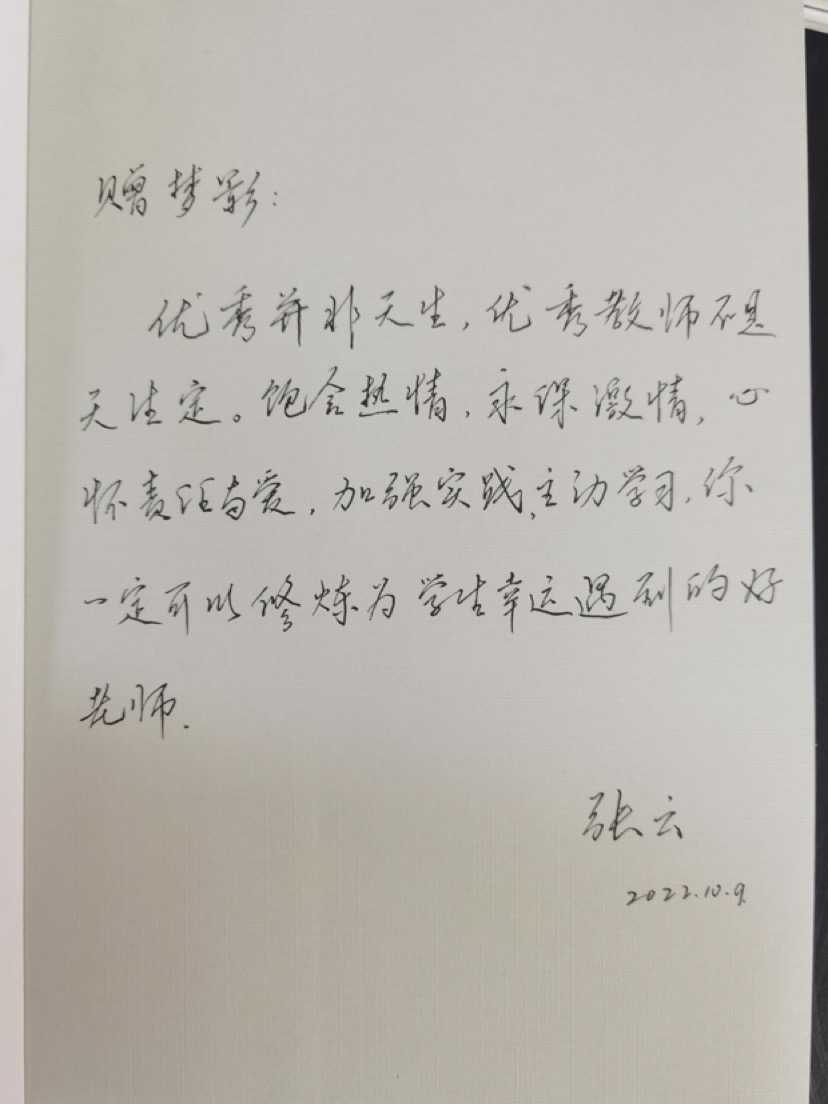 赠梦影：
优秀并非天生，优秀教师不是
天注定。饱含热情，永保激情，心
怀责任与爱，加强实践，主动学习，你
一定可以修炼为学生幸运遇到的好
老师.
张云
2022.10.9